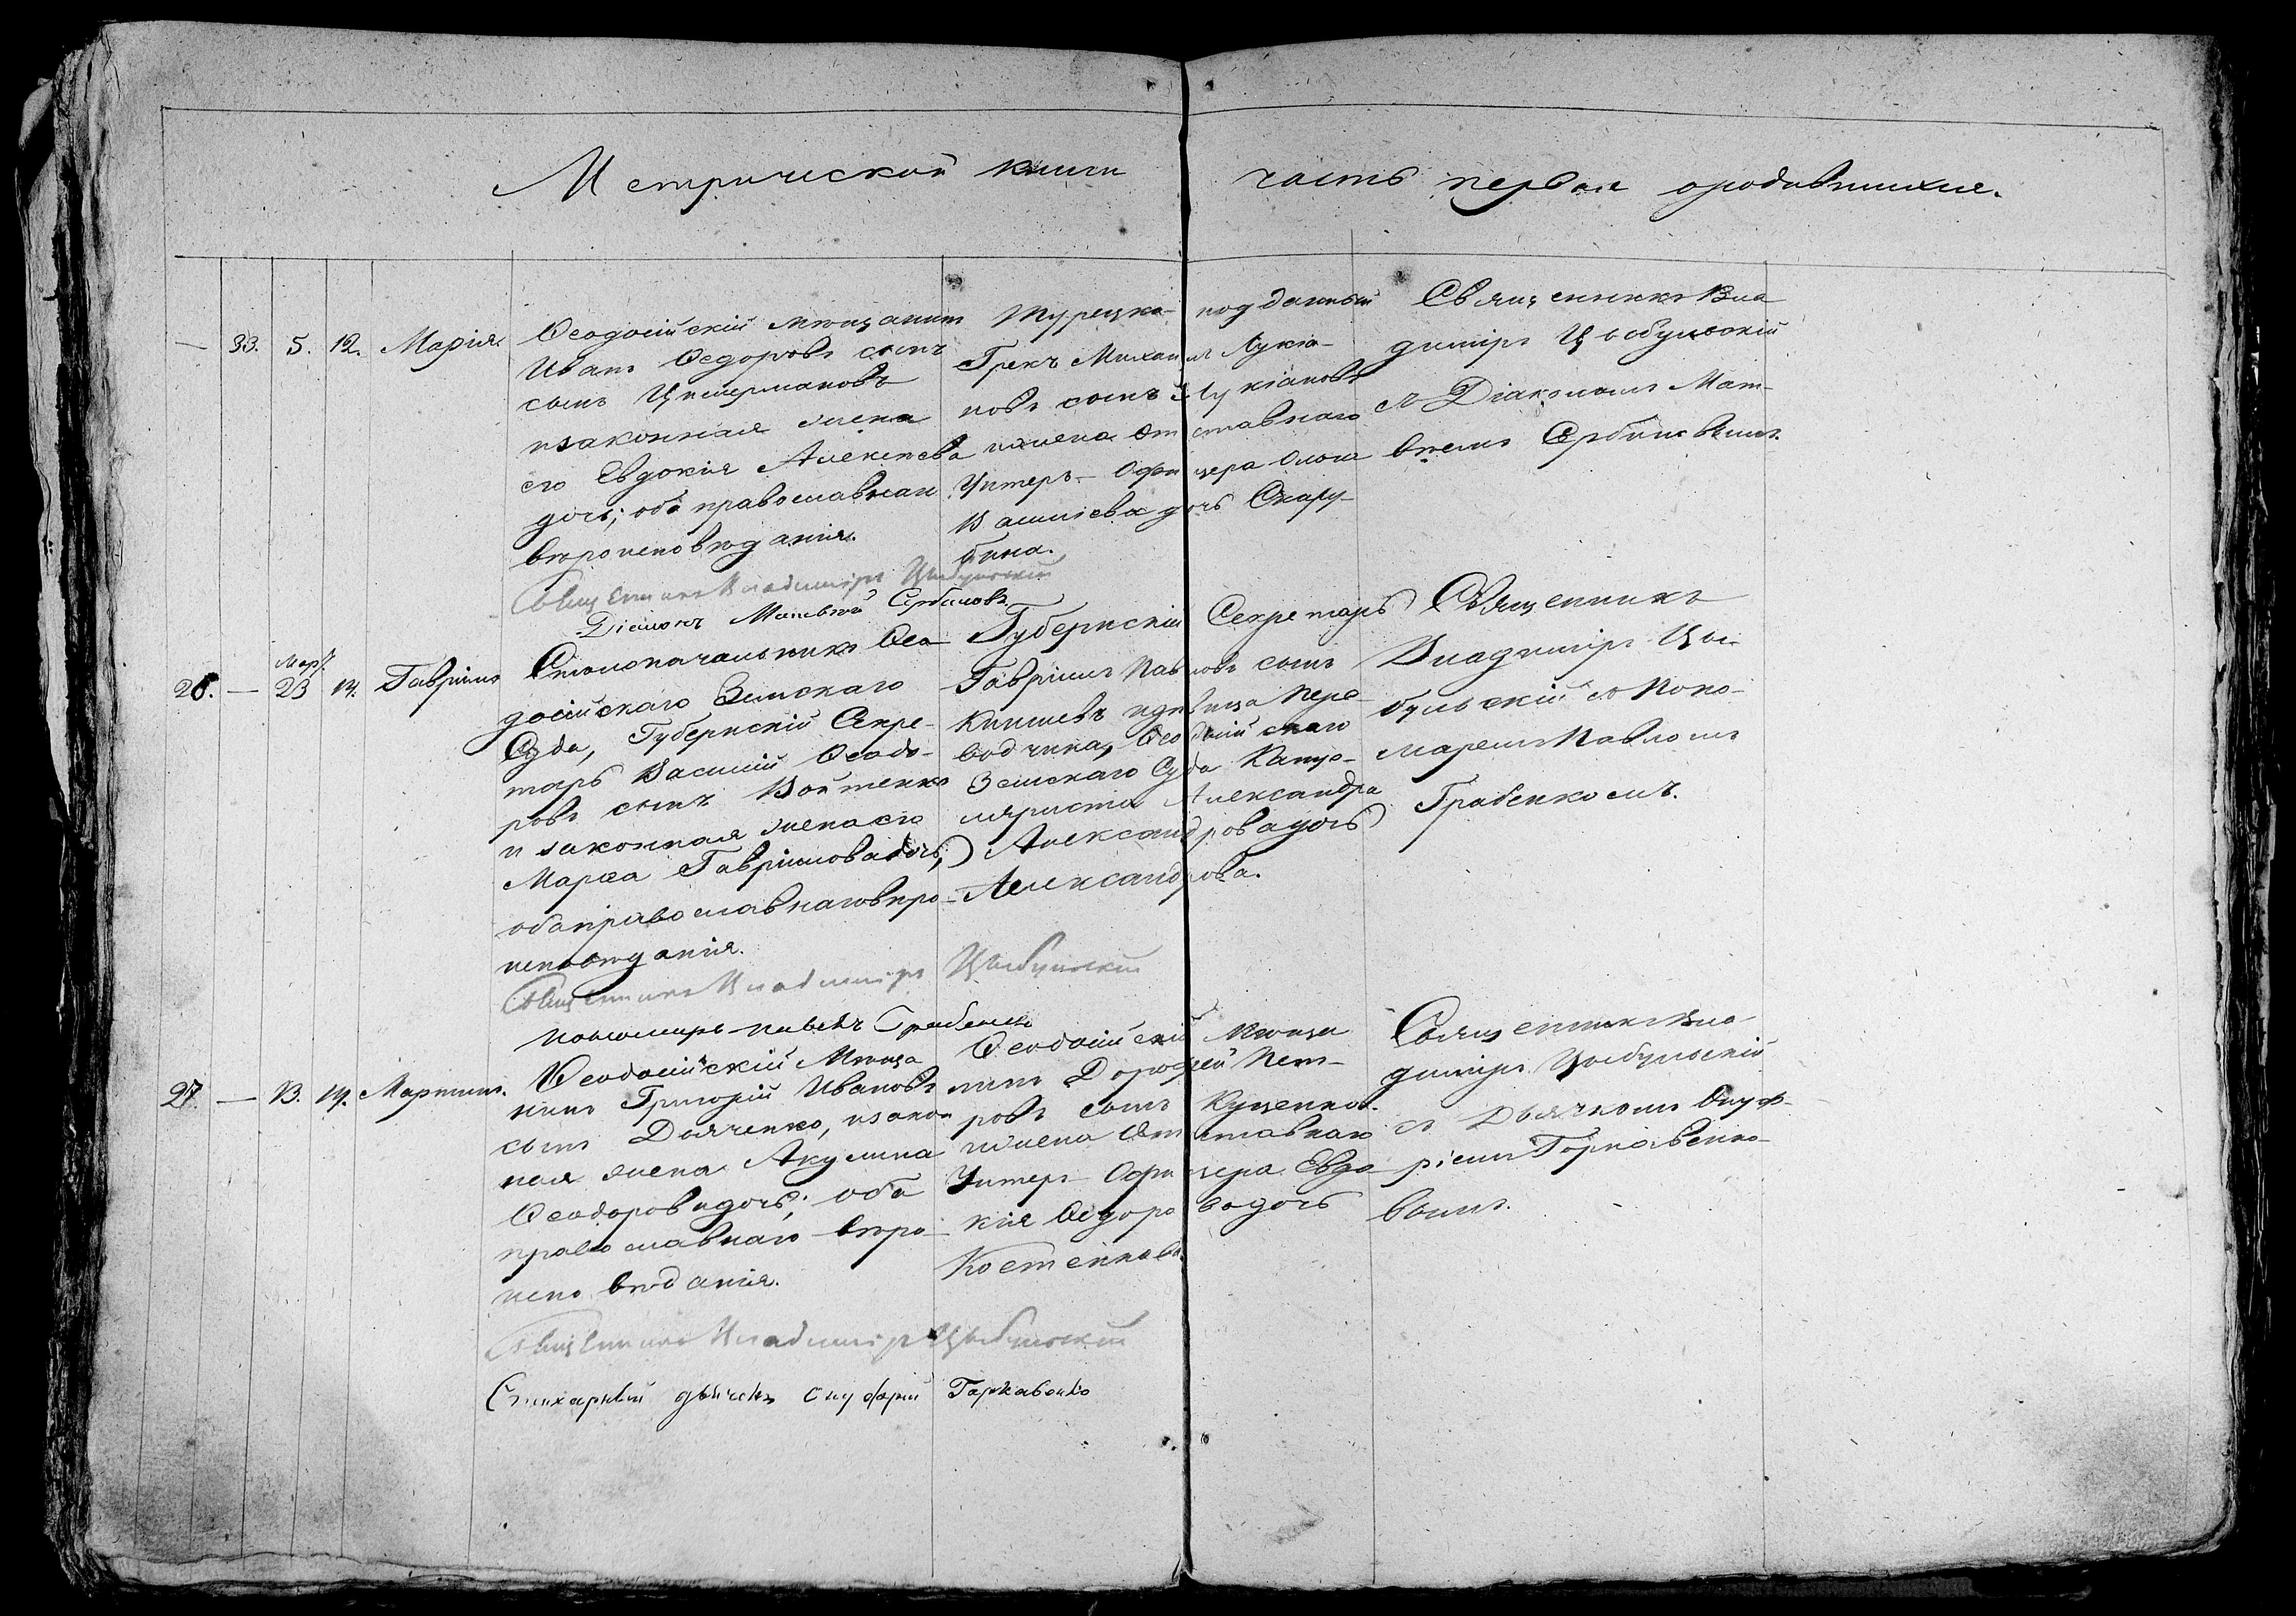 Метрической книги часть первая о родившихся.
— 33. 5. 12. Марія
Ѳеодосійскій мѣщанинъ
Иванъ Ѳедоровъ сынъ
сынъ Цитермановъ
и законная жена
его Евдокія Алексѣева
дочь; оба православнаго
вѣроисповѣданія.
Турецко-подданный
Грекъ Михаилъ Лукіа-
новъ сынъ Лукіановъ
и жена Отставнаго
Унтеръ-Офицера Ольга
Василіева дочь Скару-
бина.
Священникъ Вла
димиръ Цыбульскій
съ Діакономъ Мат-
вѣемъ Сербиновымъ.
Священникъ Владиміръ Цыбульскій
Діаконъ Матвѣй Сербиновъ
26. — Мар. 23 13. Гавріилъ
Столоначальникъ Ѳео-
досійскаго Земскаго
Суда, Губернскій Секре-
тарь Василій Ѳеодо-
ровъ сынъ Войтенко
и законная жена его
Марѳа Гавріилова дочь,
оба православнаго вѣро-
исповѣданія.
Губернскій Секретарь
Гавріилъ Павловъ сынъ
Княшевъ и дѣвица Пере-
водчика, Ѳеодосійскаго
Земскаго Суда Канце-
ляриста Александра
Александрова дочь
Александрова.
Священникъ
Владимиръ Цы-
бульскій съ Поно-
маремъ Павломъ
Грабенкомъ.
Священникъ Владиміръ Цыбульскій
Пономарь Павелъ Грабенко
27. — 13. 14. Мартинъ.
Ѳеодосійскій Мѣща
нинъ Григорій Ивановъ
сынъ Дьяченко, и закон
ная жена Акулина
Ѳеодорова дочь; оба
православнаго вѣро-
исповѣданія.
Ѳеодосійскій Мѣща
нинъ Дороѳей Пет-
ровъ сынъ Куценко.
и жена Отставнаго
Унтеръ-Офицера Евдо-
кія Ѳедорова дочь
Костенкова.
Священникъ Вла-
димиръ Цыбульскій
съ Дьячкомъ Онуф-
ріемъ Горкавенко-
вымъ.
Священникъ Владиміръ Цыбульскій
Стихарный дьячекъ Онуфрій Горкавенко